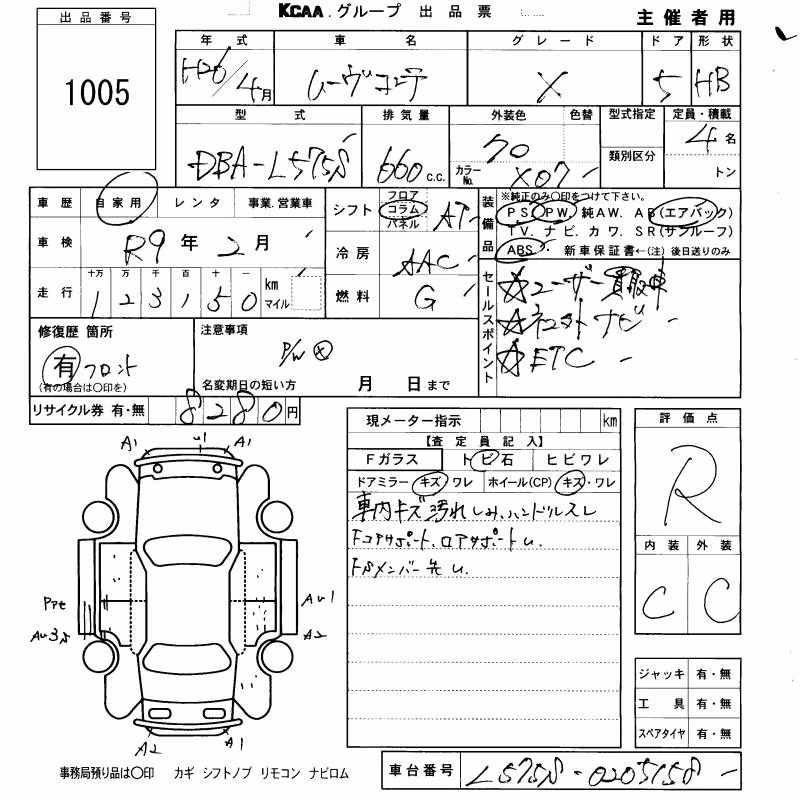 KCAA.グループ 出品票
主催者用
出品番号
1005
年式 車名 グレード ドア 形状
H26/4月 ムーヴコンテ X 5 HB
型式 排気量 外装色 色替 型式指定 定員・積載
DBA-L575S 660c.c. カラーNo. X07 類別区分 4名
トン
車歴 自家用 レンタ 事業.営業車
シフト フロア コラム パネル AT
装備品 ※純正のみ○印をつけて下さい。
PS. PW. 純AW. AB(エアバック)
TV. ナビ. カワ. SR(サンルーフ)
ABS 新車保証書←(注)後日送りのみ
車検 R9年2月
冷房 AAC
走行 十万 万 千 百 十 一
123150 km マイル
燃料 G
セールスポイント
☆ユーザー買取車
☆ネコストナビ
☆ETC
修復歴 箇所
有 フロント
(有の場合は○印を)
注意事項
P/W ⊗
名変期日の短い方 月 日まで
リサイクル券 有・無 8280円
現メーター指示 km
【査定員記入】
Fガラス トビ石 ヒビワレ
ドアミラー キズ・ワレ ホイール(CP) キズ・ワレ
車内キズ汚れしみ、ハンドルスレ
Fコアサポート、ロアサポートU.
FSメンバー先U.
評価点
R
内装 外装
C C
A1 U1 A1
AU1
A2
AU3S
A2 A1
ジャッキ 有・無
工具 有・無
スペアタイヤ 有・無
事務局預り品は○印 カギ シフトノブ リモコン ナビロム
車台番号 L575S-0205158